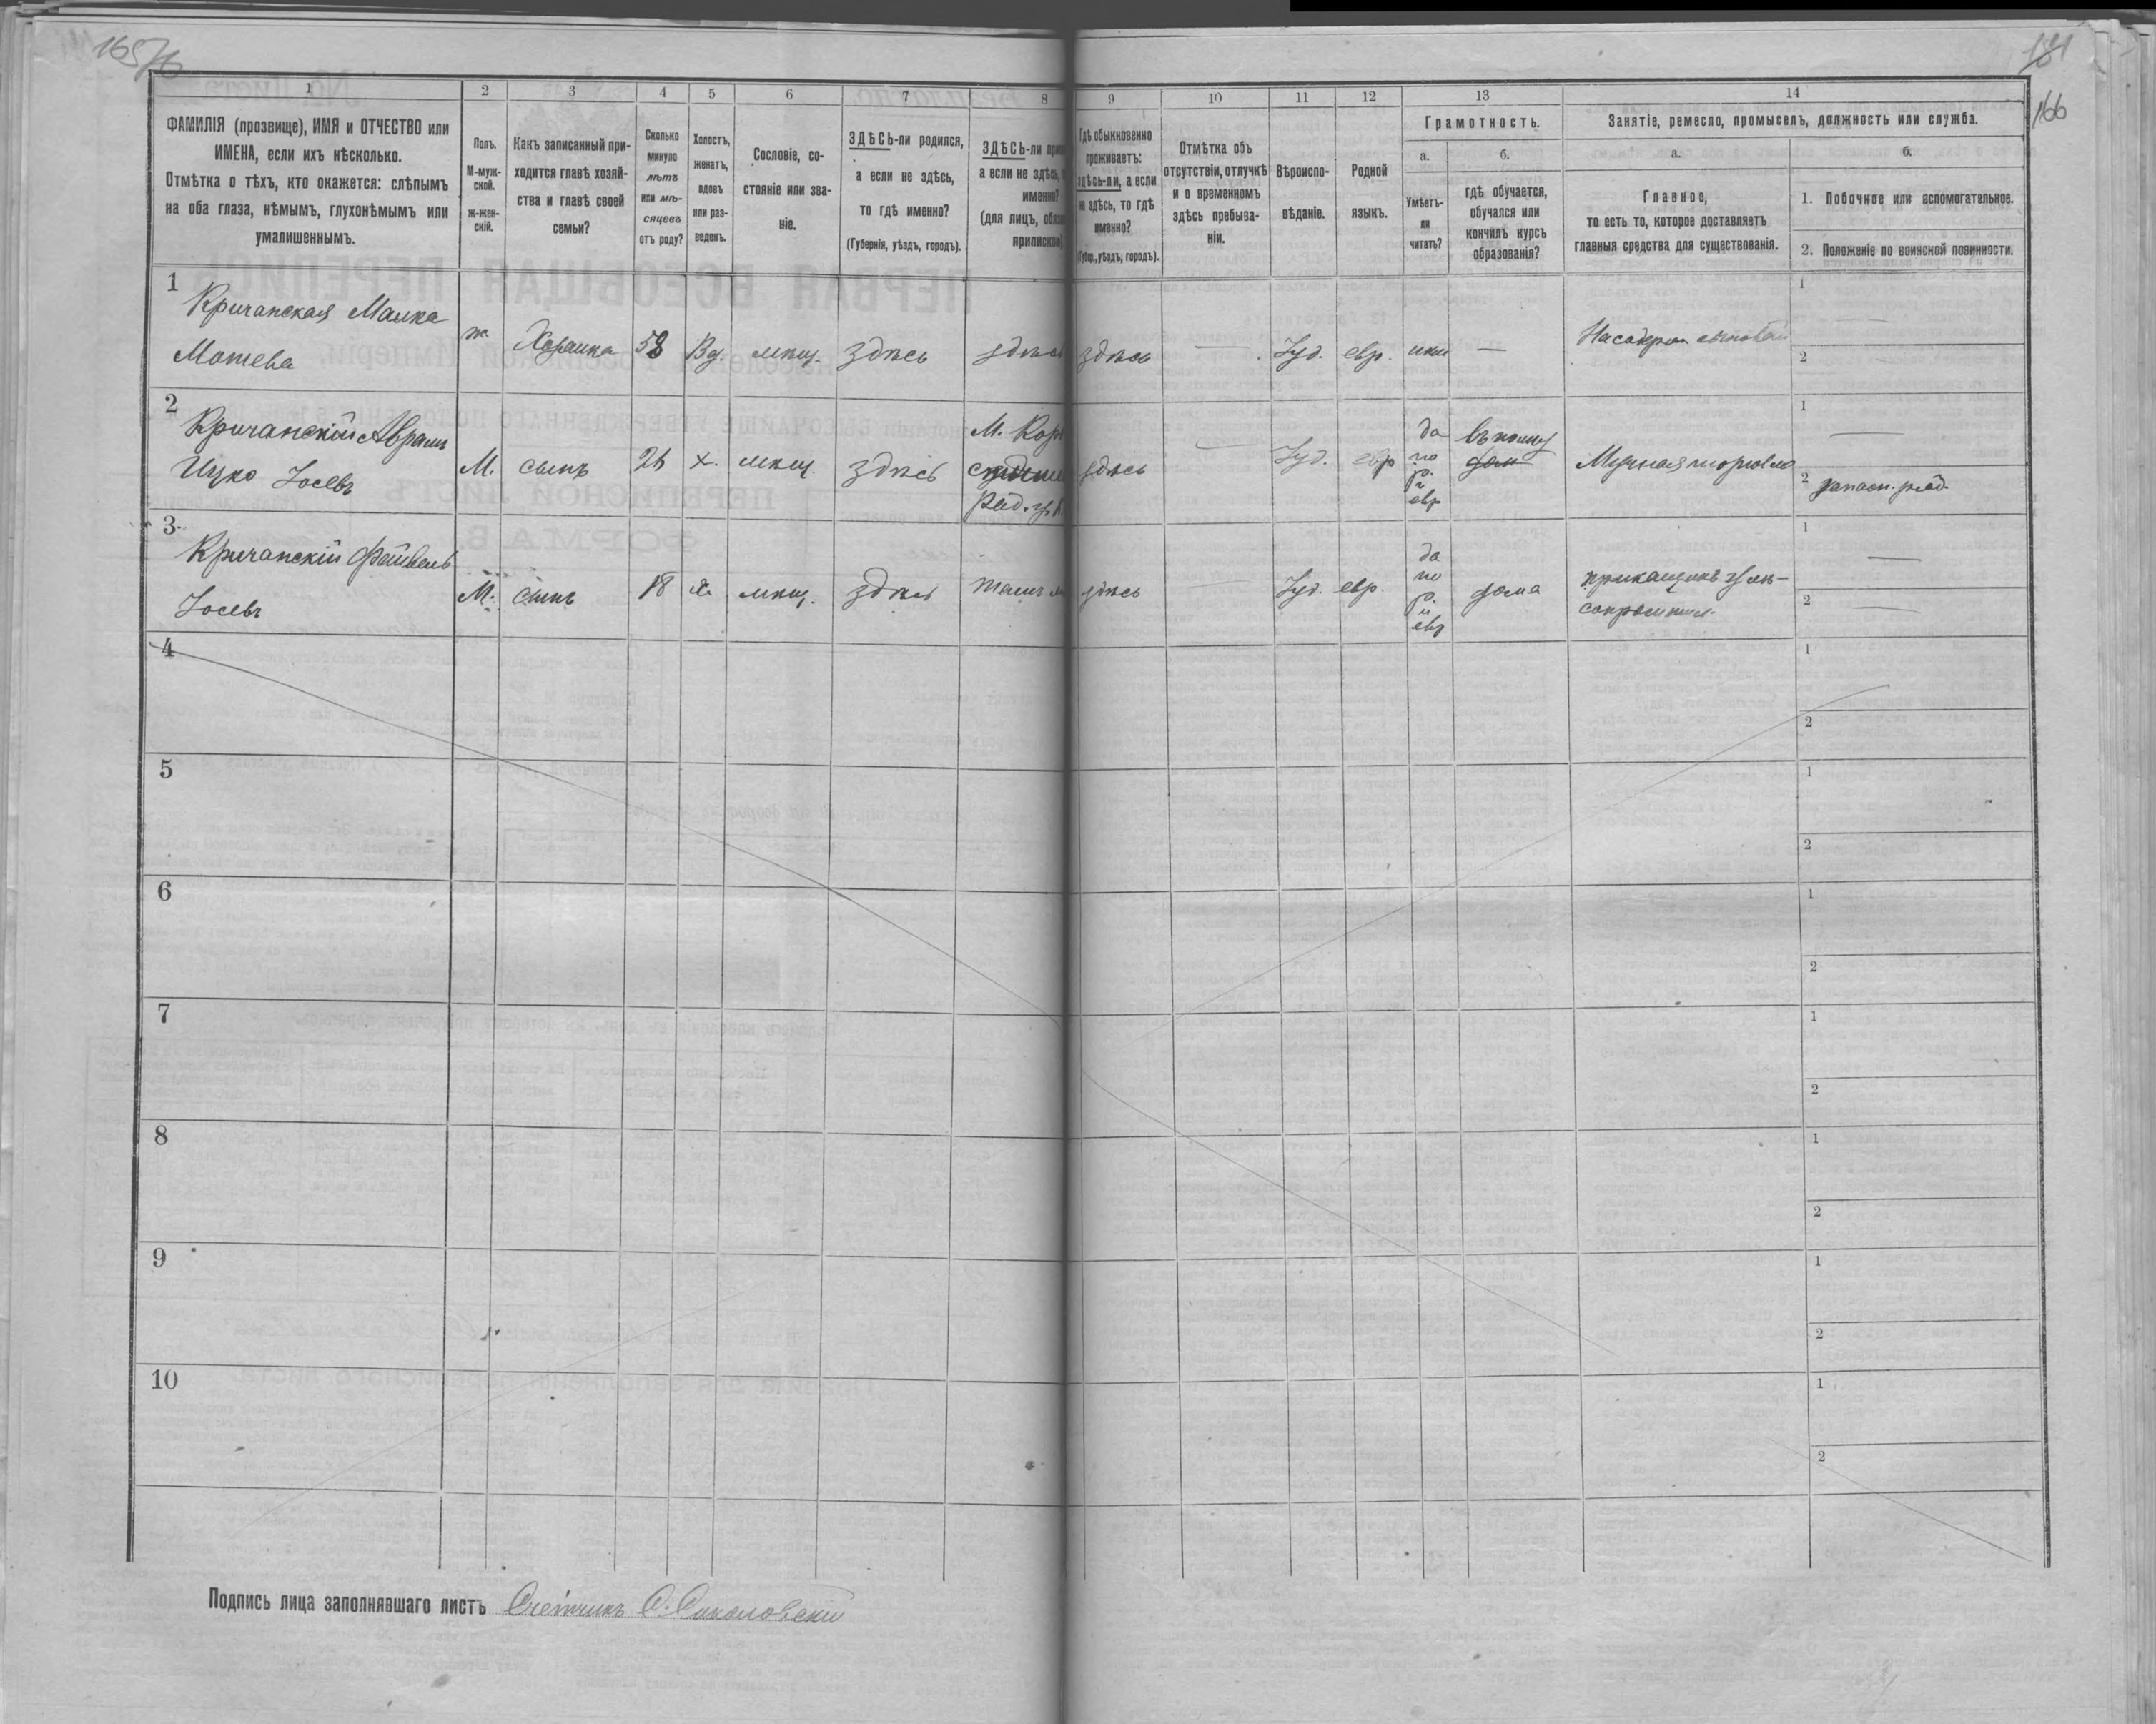 165
181
166
1 2 3 4 5 6 7 8 9 10 11 12 13 14
ФАМИЛІЯ (прозвище), ИМЯ и ОТЧЕСТВО или
ИМЕНА, если ихъ нѣсколько.
Отмѣтка о тѣхъ, кто окажется: слѣпымъ
на оба глаза, нѣмымъ, глухонѣмымъ или
умалишеннымъ.
Полъ.
М-муж-
ской.
ж-жен-
скій.
Какъ записанный при-
ходится главѣ хозяй-
ства и главѣ своей
семьи?
Сколько
минуло
лѣтъ
или мѣ-
сяцевъ
отъ роду?
Холостъ,
женатъ,
вдовъ
или раз-
веденъ.
Сословіе, со-
стояніе или зва-
ніе.
ЗДѢСЬ-ли родился,
а если не здѣсь,
то гдѣ именно?
(Губернія, уѣздъ, городъ).
ЗДѢСЬ-ли
а если не здѣсь,
именно?
(для лицъ,
Гдѣ обыкновенно
проживаетъ:
здѣсь-ли, а если
не здѣсь, то гдѣ
именно?
(Губер., уѣздъ, городъ).
Отмѣтка объ
отсутствіи, отлучкѣ
и о временномъ
здѣсь пребыва-
ніи.
Вѣроиспо-
вѣданіе.
Родной
языкъ.
Грамотность.
а.
Умѣетъ-
ли
читать?
б.
гдѣ обучается,
обучался или
кончилъ курсъ
образованія?
Занятіе, ремесло, промыселъ, должность или служба.
а.
Главное,
то есть то, которое доставляетъ
главныя средства для существованія.
б.
1. Побочное или вспомогательное.
2. Положеніе по воинской повинности.
1
Кричанская Малка
Мотева
ж
Хозяйка 58 Вд. мѣщ. здѣсь здѣсь здѣсь — Іуд. евр. —
1 —
2
2
Кричанскій Абрамъ
Ицко Іосевъ
М. сынъ х. мѣщ. здѣсь
М.
здѣсь — Іуд. евр
да
по
р.
и
евр
Мучная торговля
1 —
2 запасн. ряд.
3
Кричанскій Фейвель
Іосевъ
М. сынъ 18 х. мѣщ. здѣсь здѣсь — Іуд. евр.
да
по
р.
и
евр
дома
прикащикъ
1 —
2 —
4
1
2
5
1
2
6
1
2
7
1
2
8
1
2
9
1
2
10
1
2
Подпись лица заполнявшаго листъ Счетчикъ